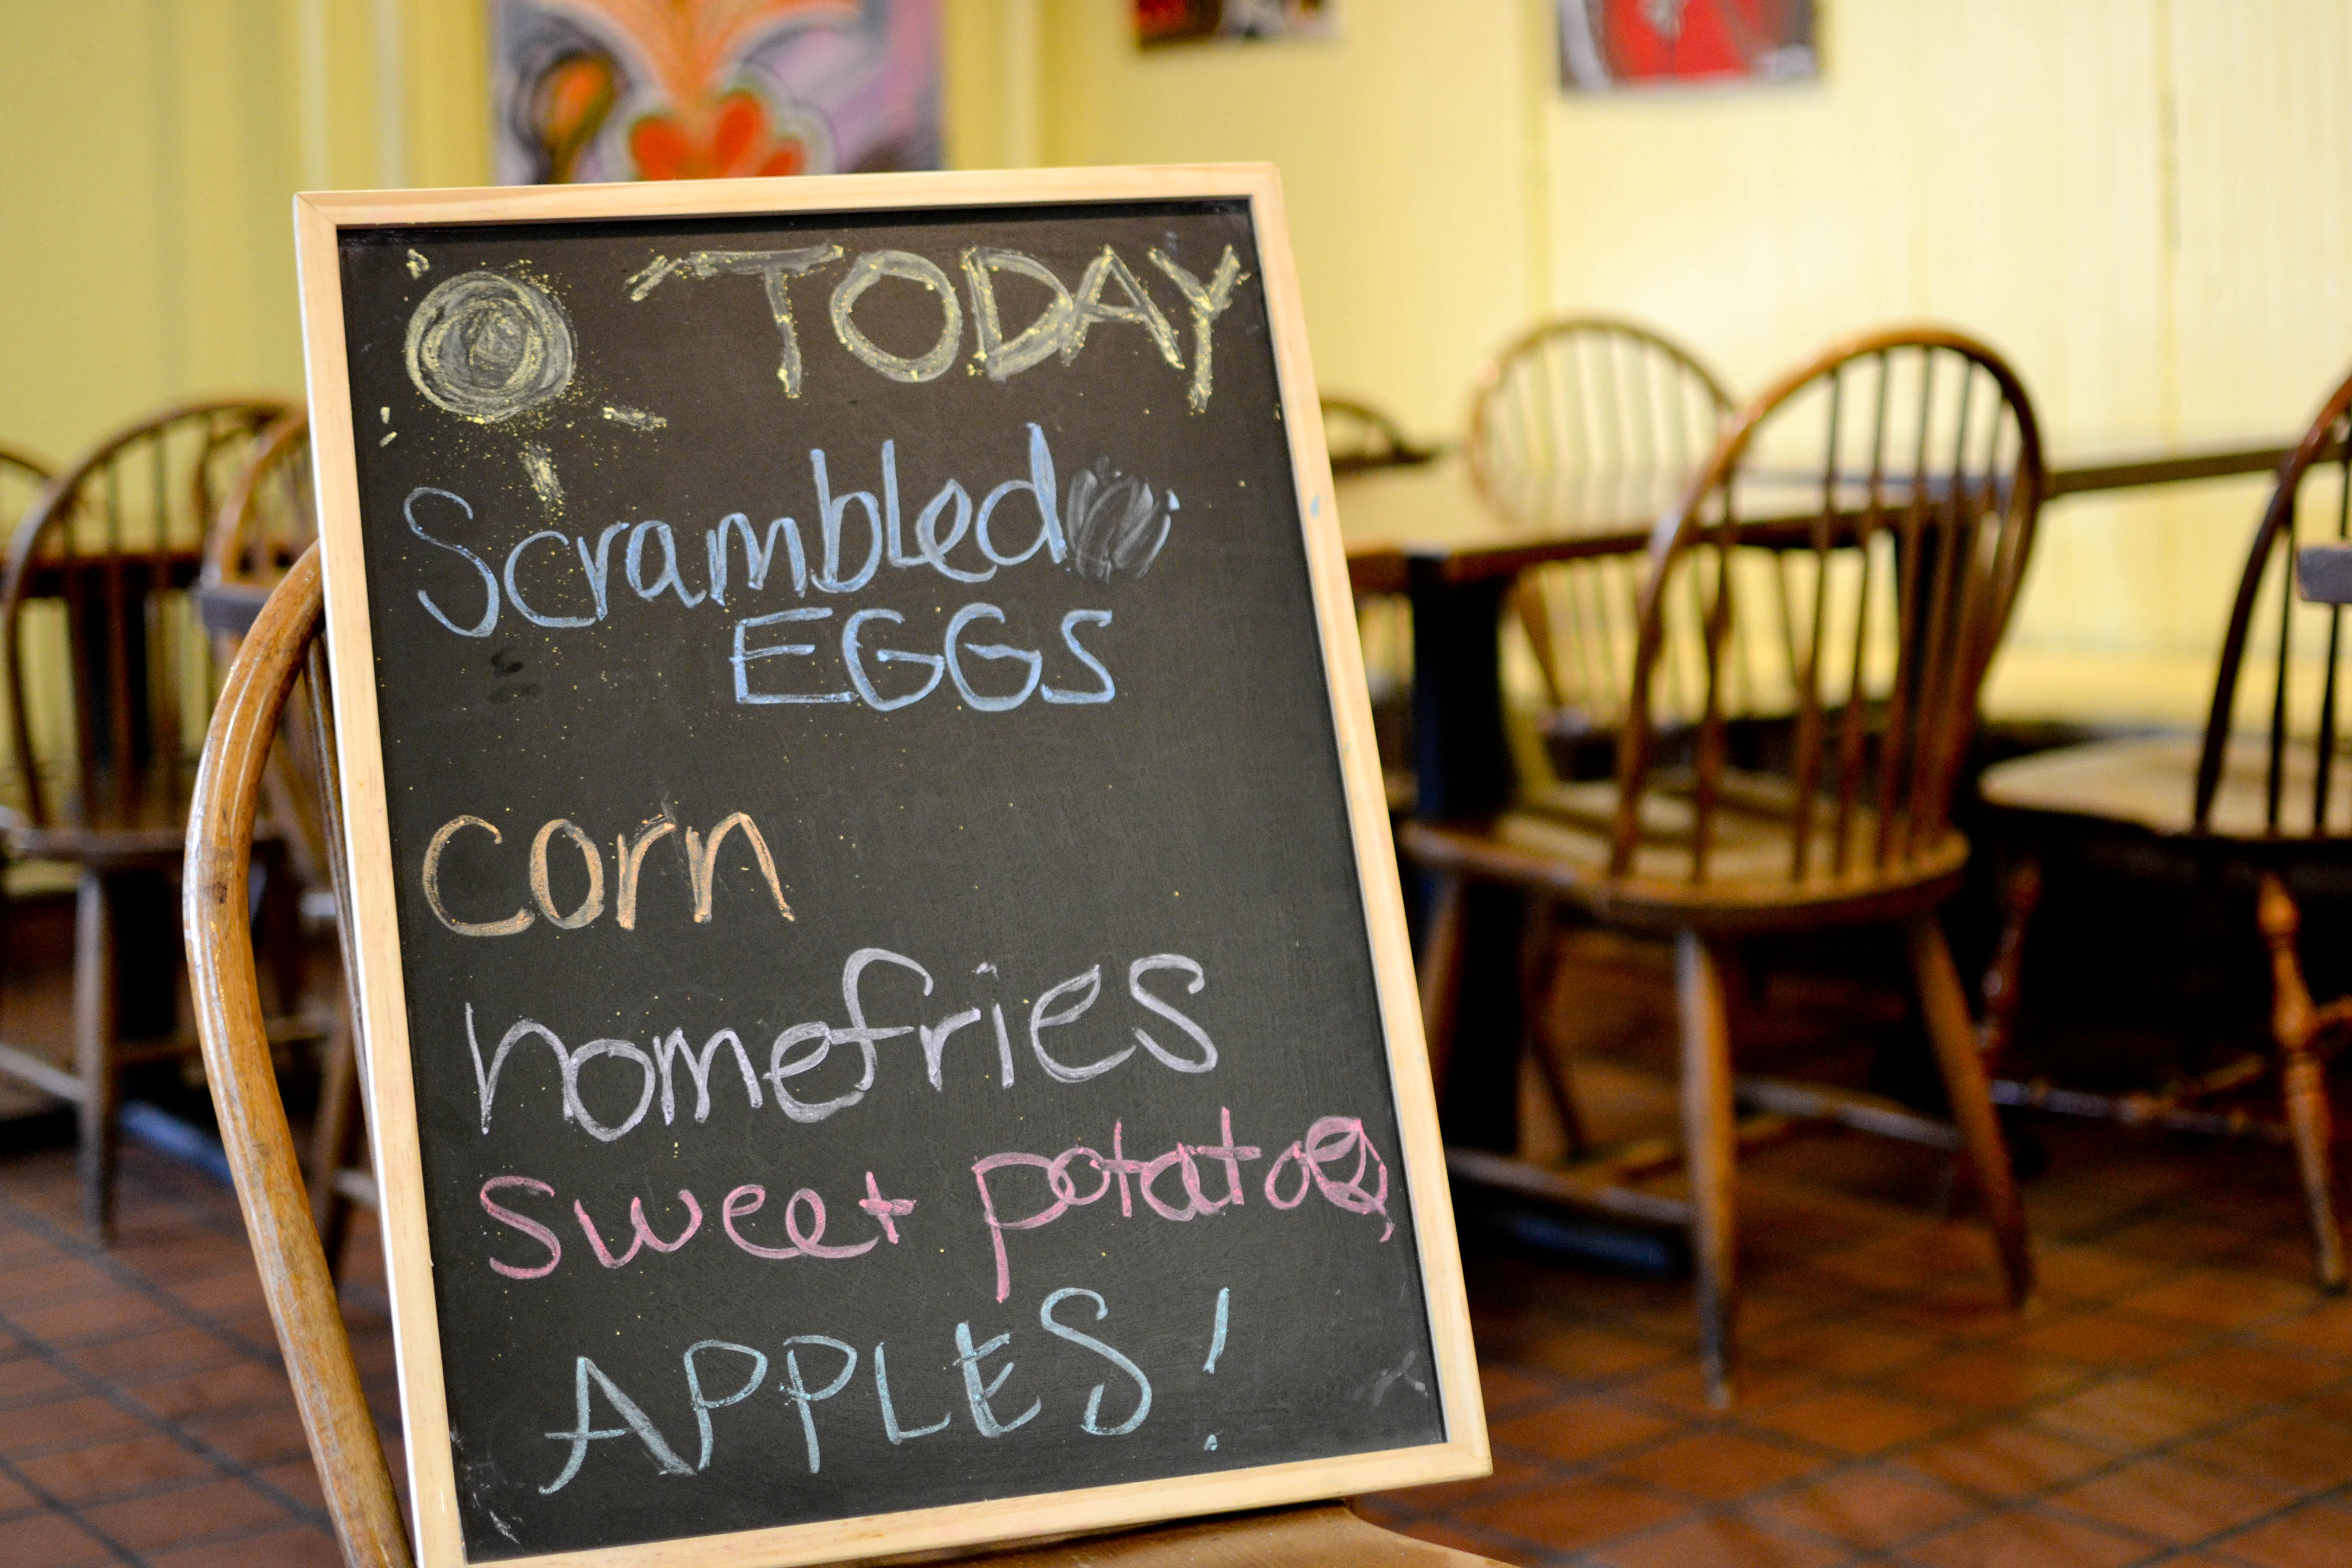 TODAY
Scrambled
EGGS
corn
homefries
sweet potatoes
APPLES!